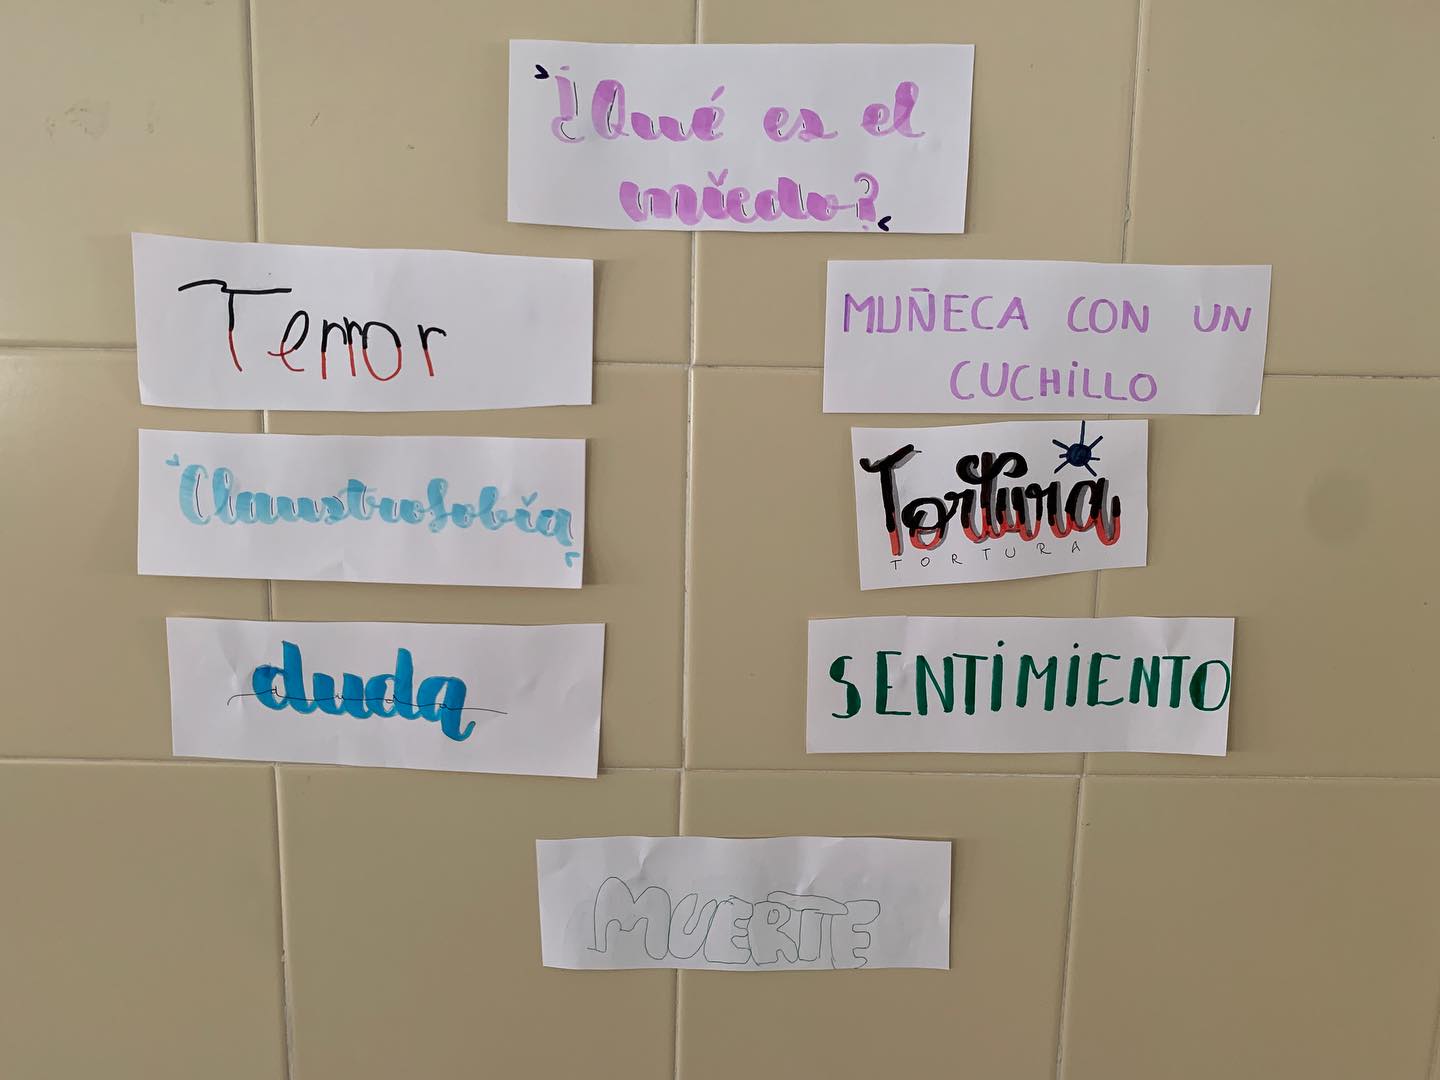 ¿Qué es el
miedo?
Terror
MUÑECA CON UN
CUCHILLO
Claustrofobia
Tortura
TORTURA
duda
duda
SENTIMIENTO
MUERTE